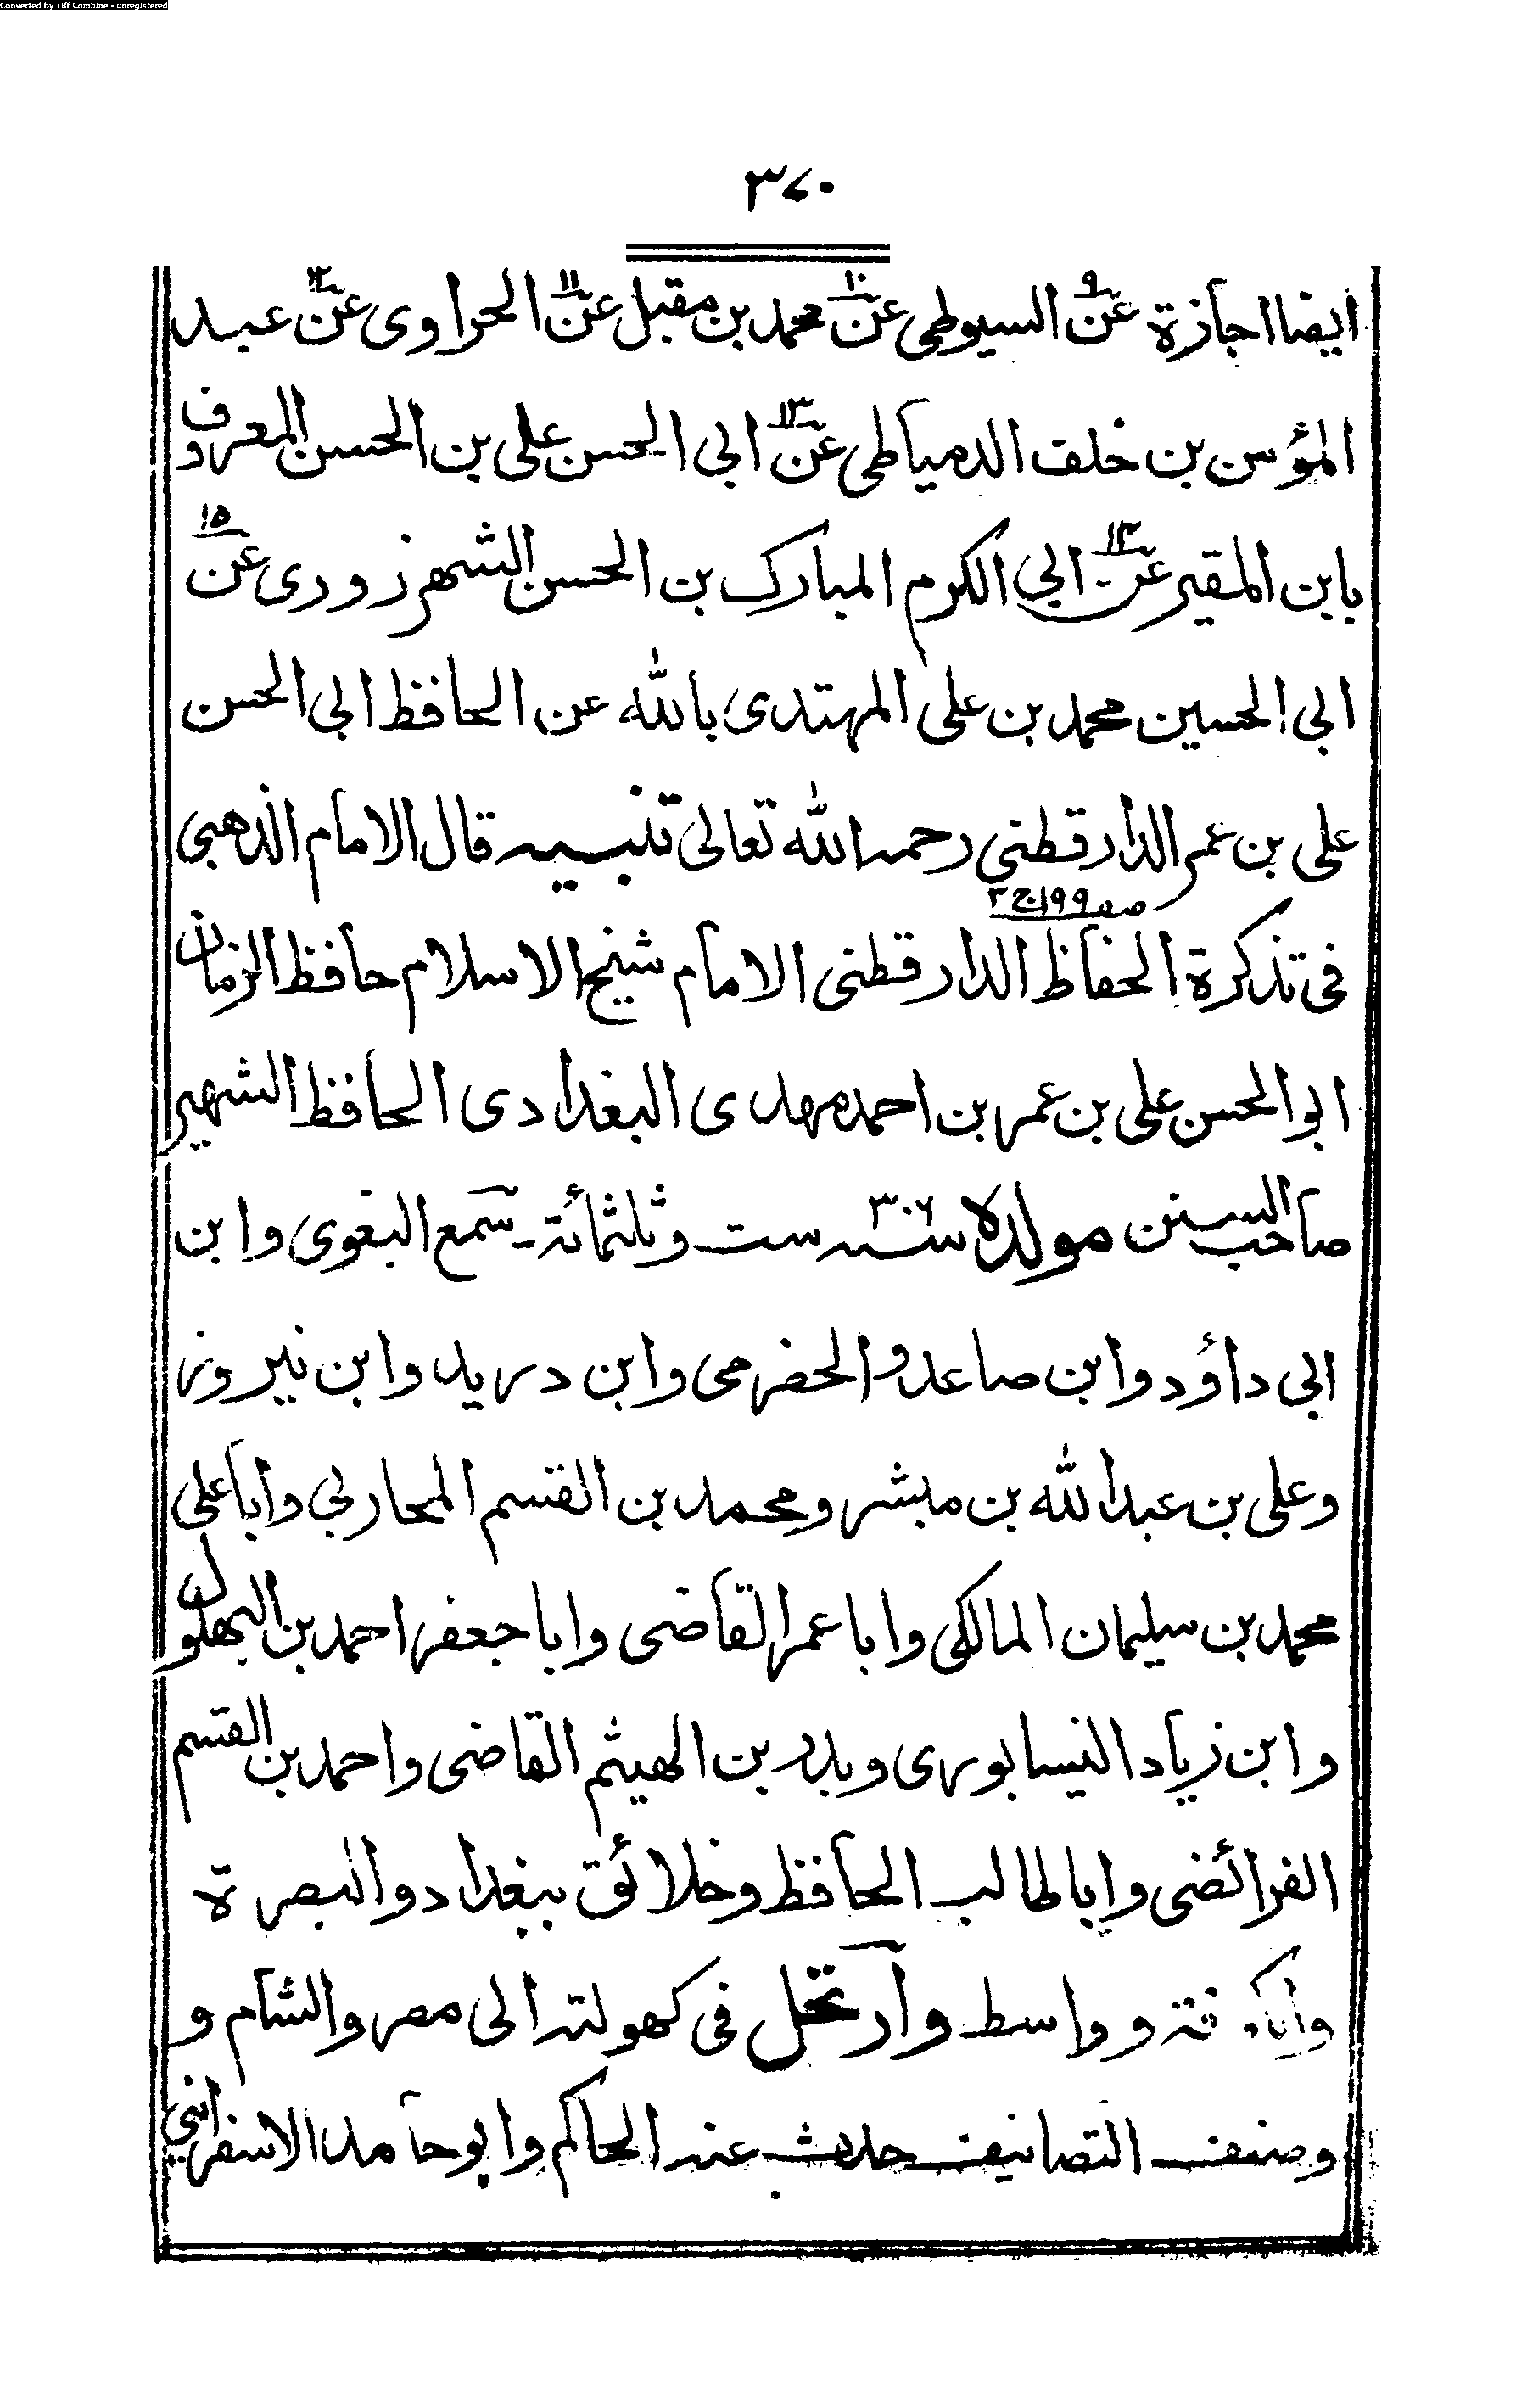 Converted by Tiff Combine - unregistered
٣٧٠
ايضا اجازة عن ٩ السيوطى عن ١٠ محمد بن مقبل عن ١١ الحراوى عن ١٢ عبد
المؤمن بن خلف الدمياطى عن ١٣ ابى الحسن على بن الحسن المعروف
بابن المقير عن ١٤ ابي الكرم المبارك بن الحسن الشهرزورى عن ١٥
ابى الحسين محمد بن على المهتدى بالله عن الحافظ ابى الحسن
على بن عمر الدارقطنى رحمه الله تعالى تنبيه قال الامام الذهبى
فى تذكرة الحفاظ صه ١٩٩ ج ٣ الدارقطنى الامام شيخ الاسلام حافظ الزمان
ابوالحسن على بن عمر بن احمد مهدى البغدادى الحافظ الشهير
صاحب السنن مولده سنه ٣٠٦ ست وثلثمائة - سمع البغوى وابن
ابى داؤد وابن صاعد والحضرمى وابن دريد وابن نيروز
وعلى بن عبدالله بن مبشر ومحمد بن القسم المحاربى وابا على
محمد بن سليمان المالكى وابا عمر القاضى وابا جعفر احمد بن البهلول
وابن زياد النيسابورى وبدر بن الهيثم القاضى واحمد بن القسم
الفرائضى وابا طالب الحافظ وخلائق ببغداد والبصرة
وواسط وارتحل فى كهولته الى مصر والشام و
وصنف التصانيف حدث عنه الحاكم وابوحامد الاسفرائنى